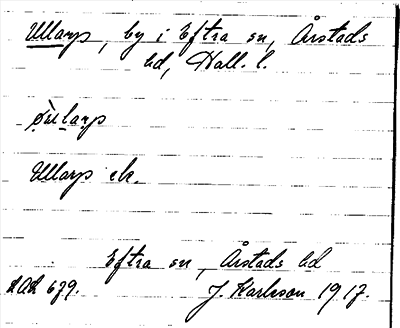 Ullarp, by i Eftra sn, Årstads
hd, Hall. l.
Ullarp ek.
Eftra sn, Årstads hd
LAL 679. J. Karlsson 1917.